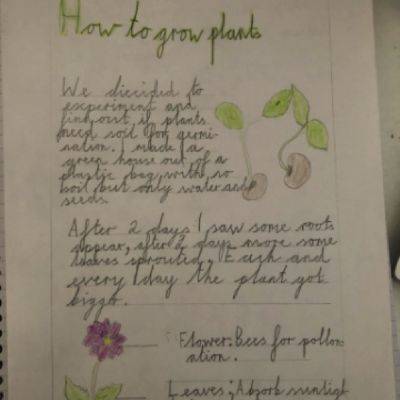 How to grow plants
We diecided to
experiment and
find out if plants
need soil for germi-
nation. I made a
green house out of a
plastic bag with no
soil but only water and
seeds.
After 2 days I saw some roots
appear, after 2 days more some
leaves sprouted, Each and
every day the plant got
bigger.
Flower: Bees for pollon-
ation.
Leaves; Absorb sunligt